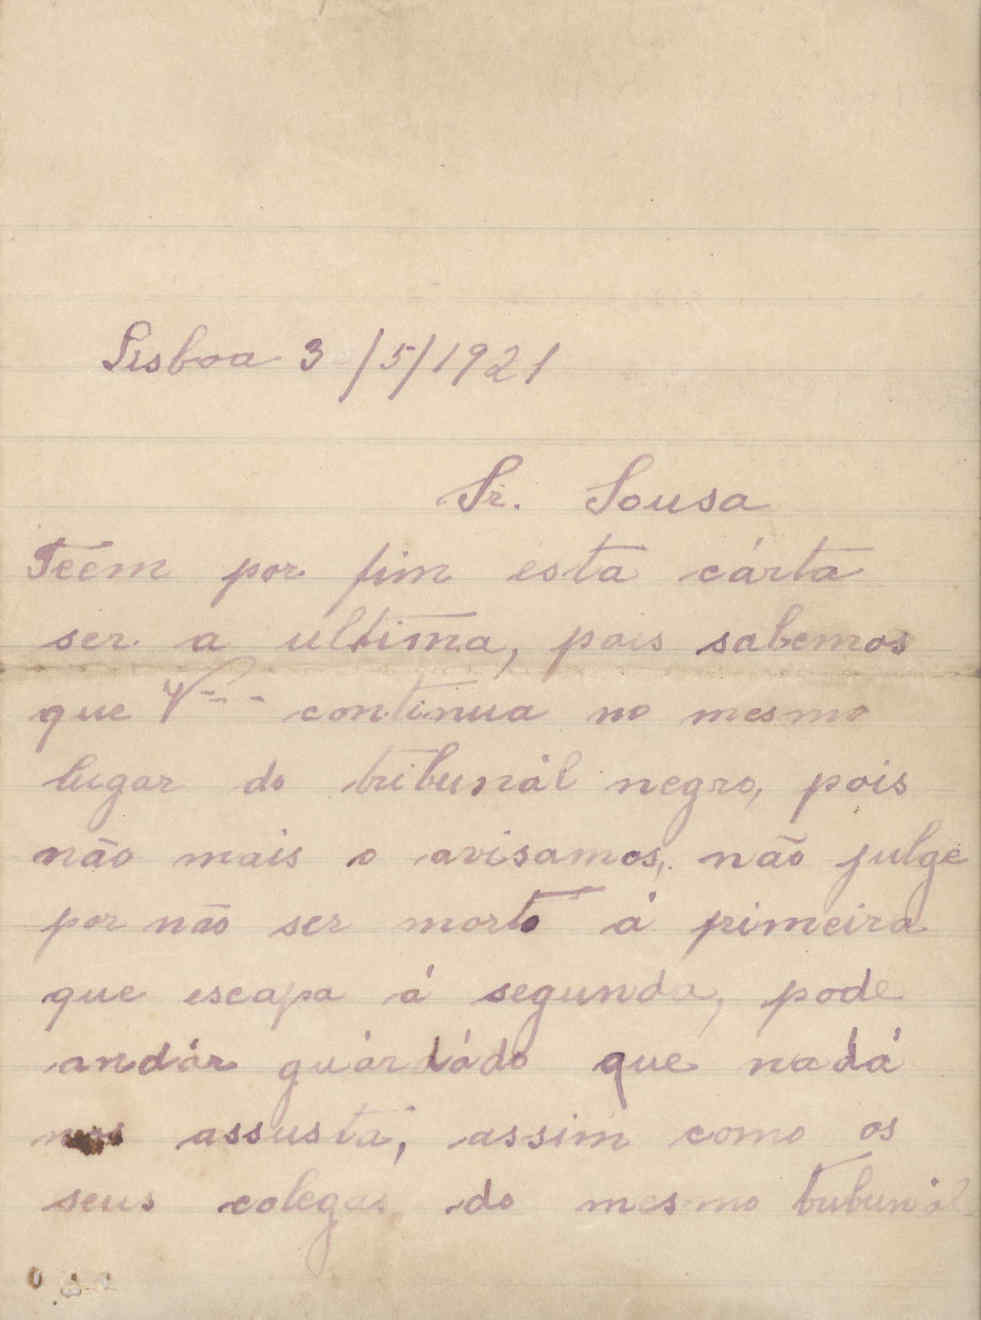 Lisboa 3/5/1921
Sr. Sousa
Teem por fim esta cárta
ser a ultima, pois sabemos
que continua no mesmo
lugar do tribunál negro, pois
não mais o avisamos, não julge
por não ser morto á primeira
que escapa á segunda, pode
andár guárdádo que nadá
nos assusta, assim como os
seus colegas do mesmo tribunál